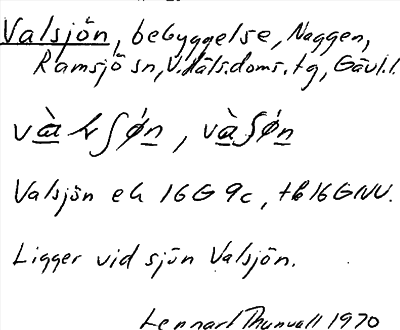 Valsjön, bebyggelse, Naggen,
Ramsjö sn, V.Häls.doms.tg, Gävl.l.
và ʃǿn, vàʃǿn
Valsjön ek 16G 9c, tk 16GNV.
Ligger vid sjön Valsjön.
Lennart Thunvall 1970